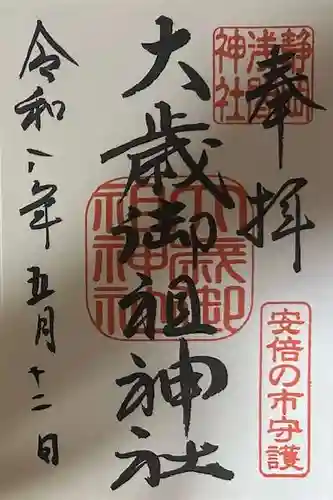 奉拝
静岡浅間神社
安倍の市守護
大歳御祖神社
大歳御祖神社
令和八年五月十二日